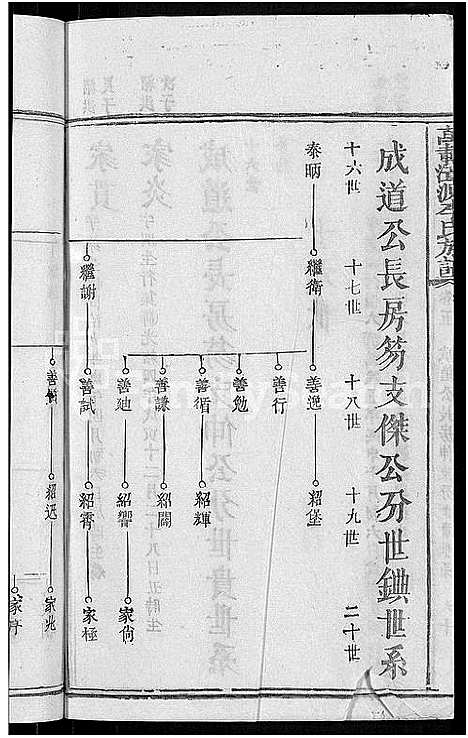 成道公長房芴支傑公房世鐭世系
十六世 十七世 十八世 十九世 二十世
泰昞 繼衛 善逸 紹堡
善行
善勉
善循 紹輝
善謙 紹關
善迪 紹響 家尚
繼謝 善試 紹霄 家極
紹远 家兆
家亨